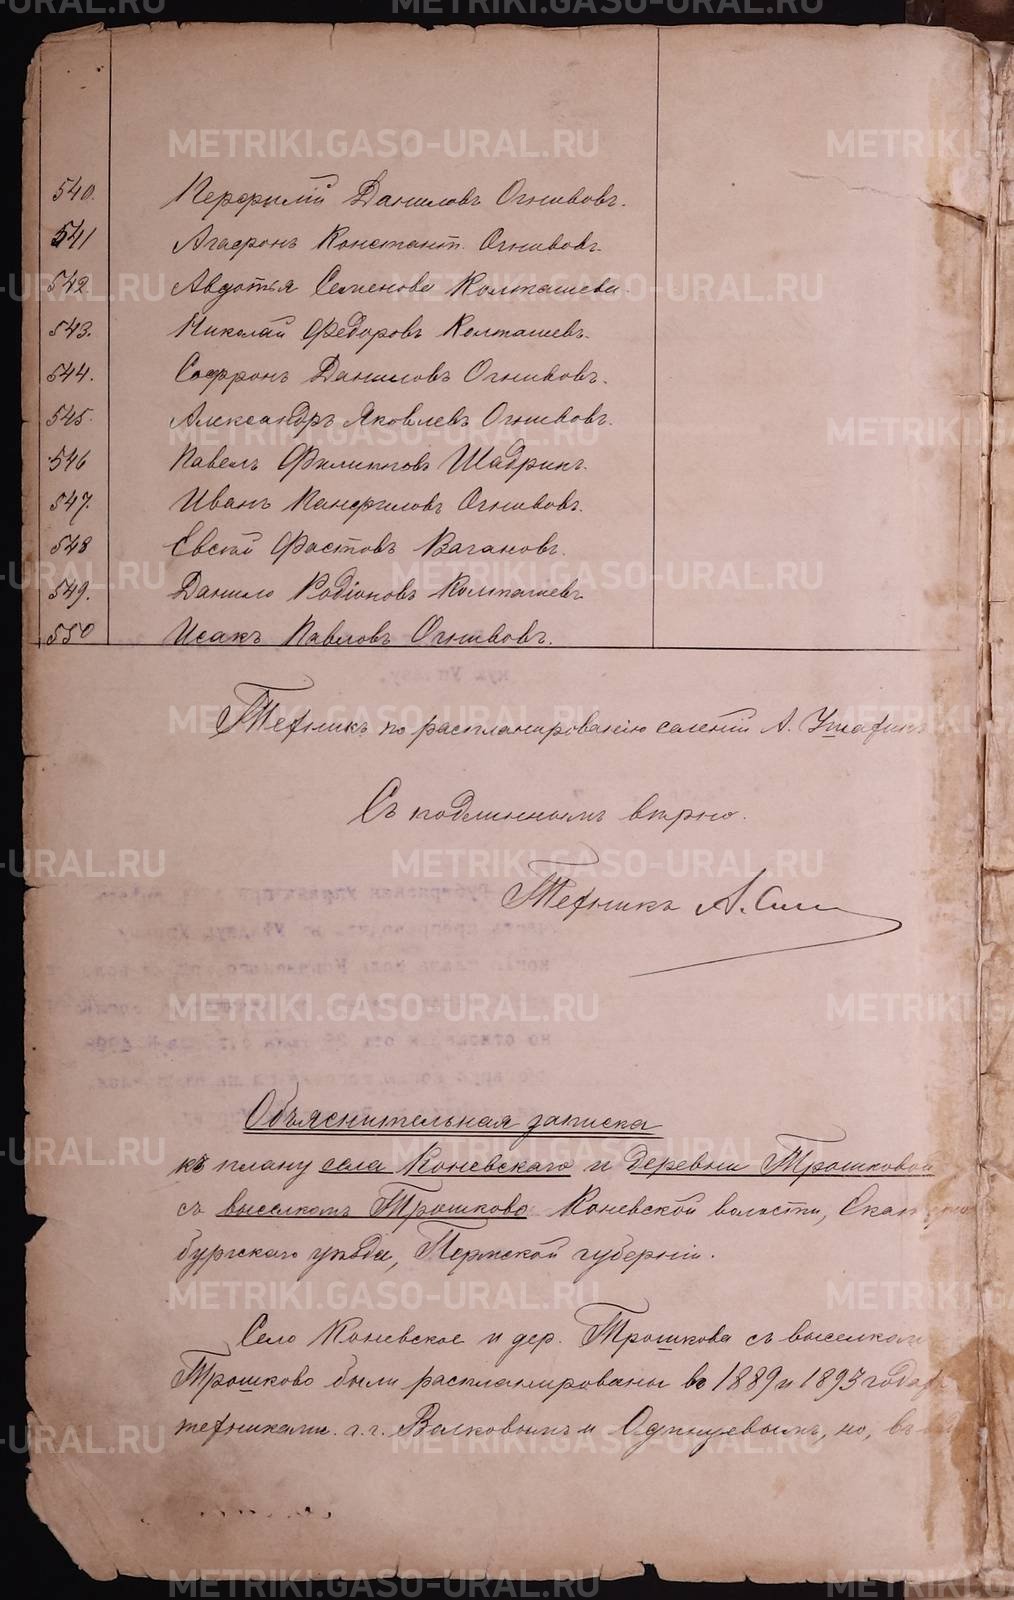 540. Перфилій Даниловъ Огнивовъ.
541 Агафонъ Констант. Огнивовъ.
542. Авдотья Семенова Колташева.
543. Николай Федоровъ Колташевъ.
544. Софронъ Даниловъ Огнивовъ.
545. Александръ Яковлевъ Огнивовъ.
546 Павелъ Филипповъ Шадринъ.
547. Иванъ Панфиловъ Огнивовъ.
548 Евсей Фастовъ Вагановъ.
549. Данило Родіоновъ Колташевъ
550 Исакъ Павловъ Огнивовъ.
Техникъ по распланированію селеній А.
Съ подлиннымъ вѣрно.
Техникъ А.
Объяснительная записка
къ плану села Коневскаго и деревни Трошковой
съ выселкомъ Трошково Коневской волости, Екатерин
бургскаго уѣзда, Пермской губерніи.
Село Коневское и дер. Трошкова съ выселкомъ
Трошково были распланированы въ 1889 и 1893 годахъ
техниками г.г. Волковымъ и Одинцевымъ, но, въ
METRIKI.GASO-URAL.RU